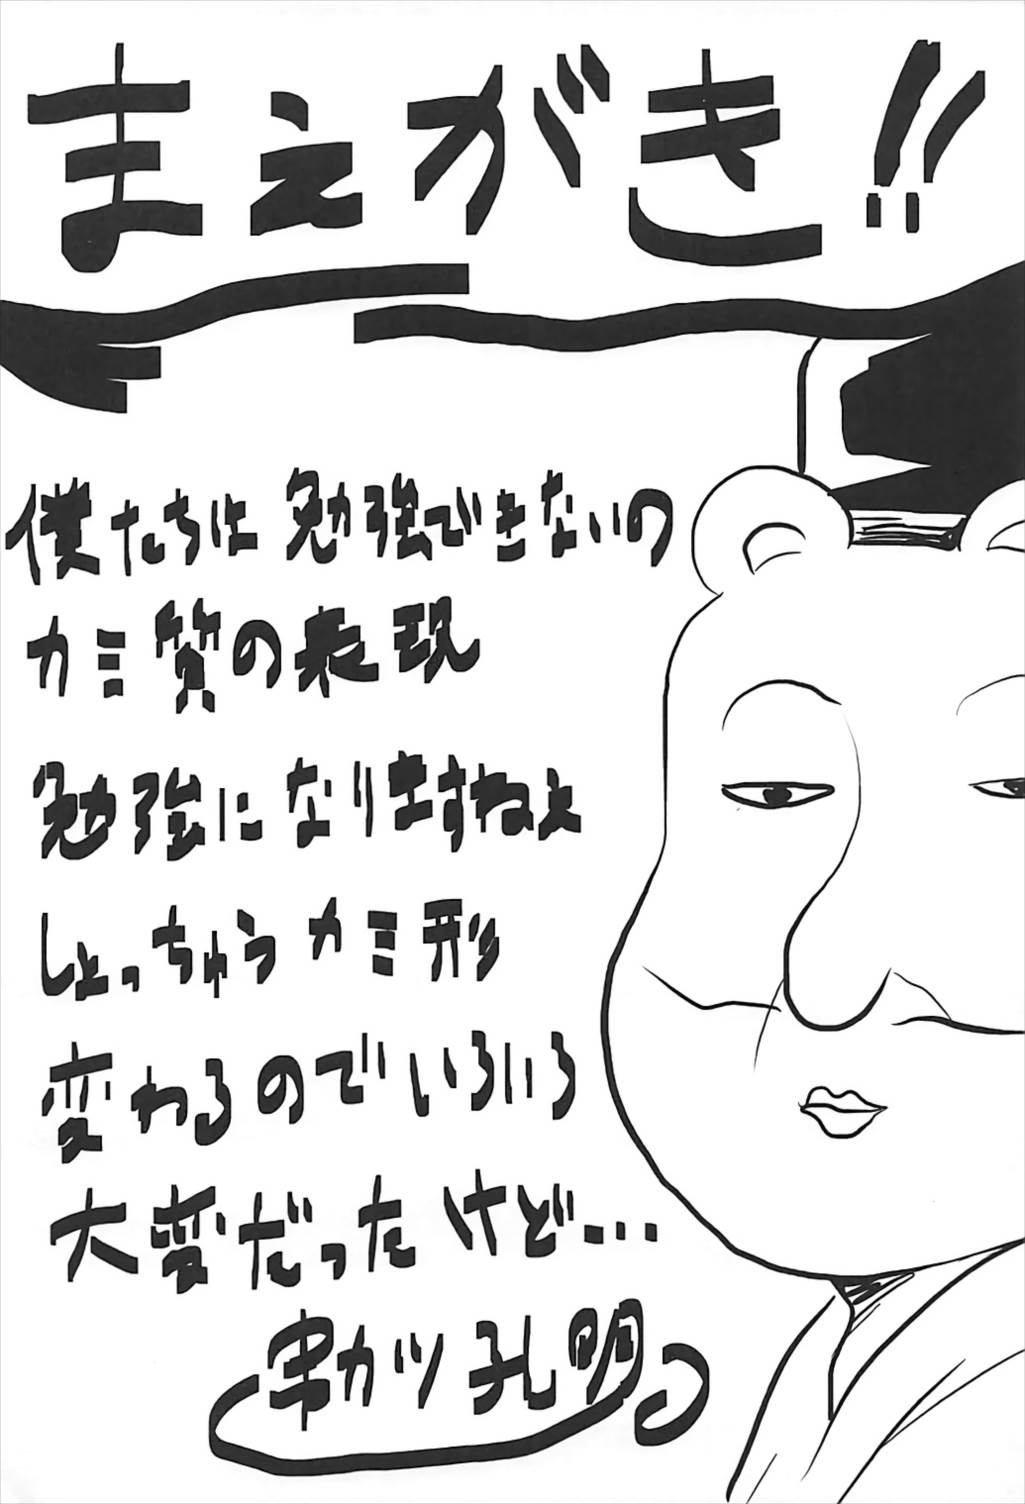 まえがき!!
僕たちは勉強できないの
カミ質の表現
勉強になりますねぇ
しょっちゅうカミ形
変わるのでいろいろ
大変だったけど...
串カツ孔明